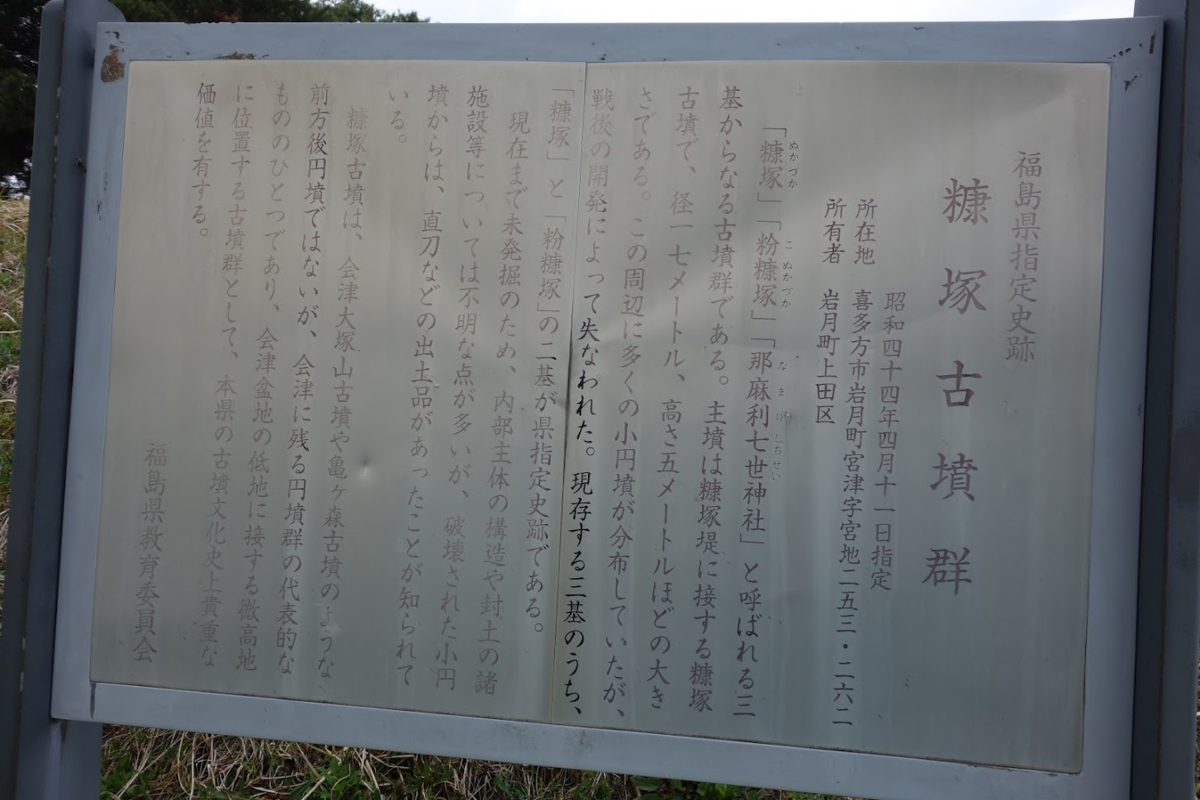 福島県指定史跡
糠塚古墳群
昭和四十四年四月十一日指定
所在地 喜多方市岩月町宮津字宮地二五三・二六二
所有者 岩月町上田区
「糠塚」「粉糠塚」「那麻利七世神社」と呼ばれる三
基からなる古墳群である。主墳は糠塚堤に接する糠塚
古墳で、径一七メートル、高さ五メートルほどの大き
さである。この周辺に多くの小円墳が分布していたが、
戦後の開発によって失なわれた。現存する三基のうち、
「糠塚」と「粉糠塚」の二基が県指定史跡である。
現在まで未発掘のため、内部主体の構造や封土の諸
施設等については不明な点が多いが、破壊された小円
墳からは、直刀などの出土品があったことが知られて
いる。
糠塚古墳は、会津大塚山古墳や亀ヶ森古墳のような
前方後円墳ではないが、会津に残る円墳群の代表的な
もののひとつであり、会津盆地の低地に接する微高地
に位置する古墳群として、本県の古墳文化史上貴重な
価値を有する。
福島県教育委員会